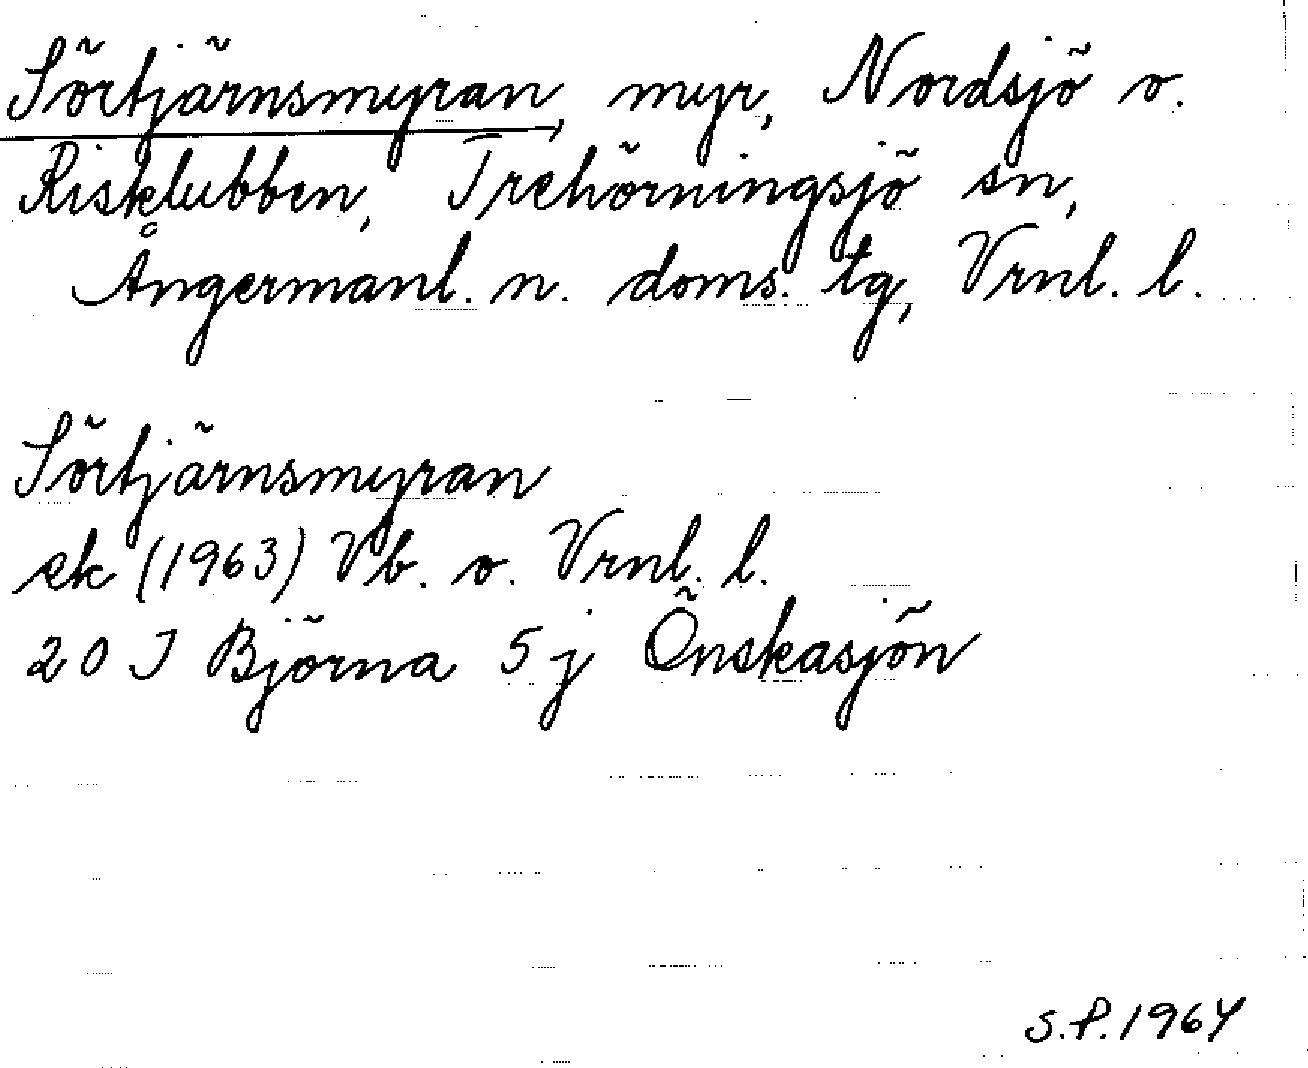 Sörtjärnsmyran, myr, Nordsjö o.
Risklubben, Trehörningsjö sn,
Ångermanl. n. doms. tg, Vrnl. l.
Sörtjärnsmyran
ek (1963) Vb. o. Vrnl. l.
20 J Björna 5 j Önskasjön
S.P. 1964